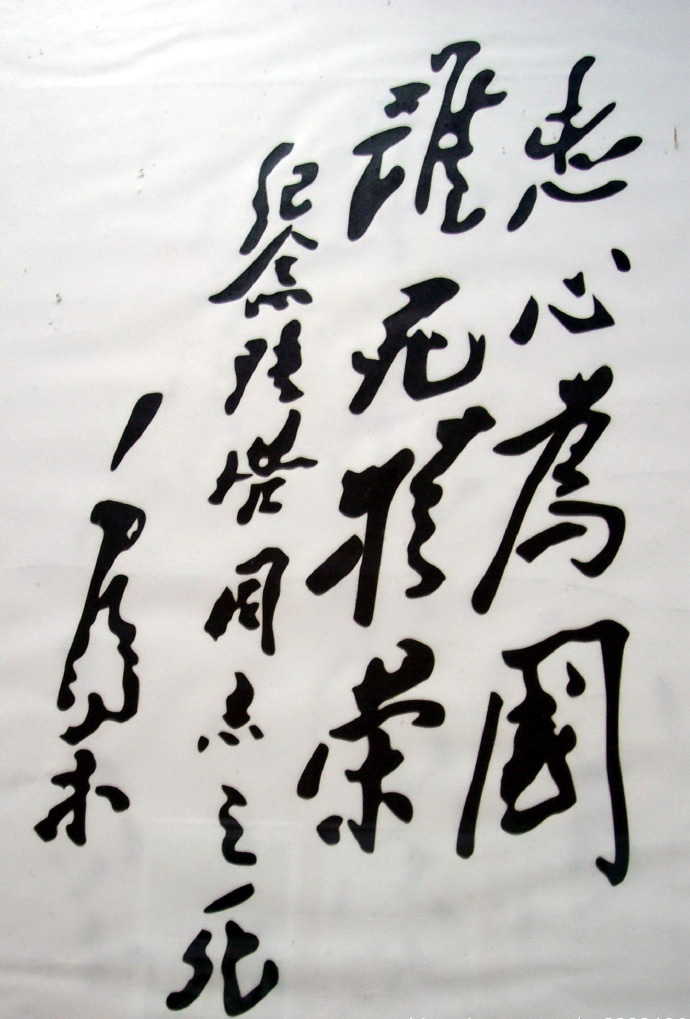 忠心為國
雖死猶榮
紀念張浩同志之死
毛澤東